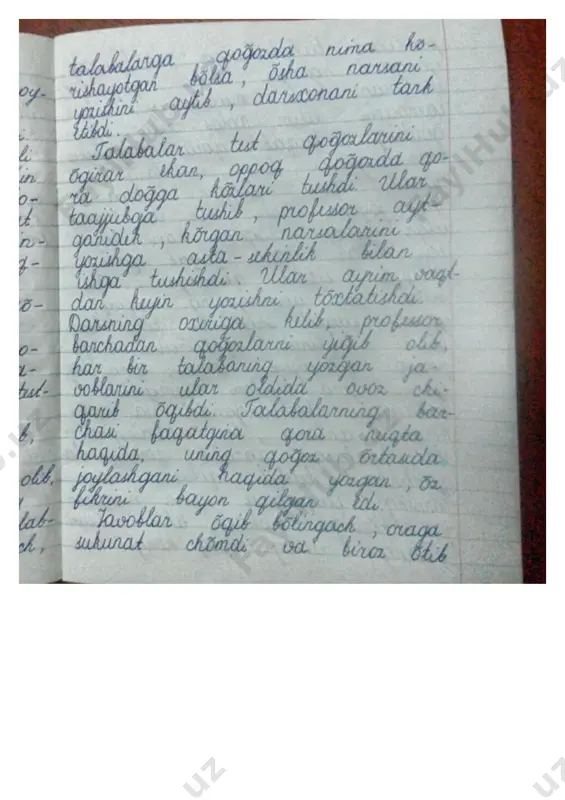 talabalarga qoğozda nima kö-
rishayotgan bõlsa, õsha narsani
yozishini aytib, darsxonani tark
etibdi.
Talabalar test qoğozlarini
õgirar ekan, oppoq qoğozda qo-
ra doğga kõzlari tushdi. Ular
taajjubga tushib, professor ayt-
ganidek, kõrgan narsalarini
yozishga asta-sekinlik bilan
ishga tushishdi. Ular ayrim vaqt-
dan keyin yozishni tõxtatishdi.
Darsning oxiriga kelib, professor
barchadan qoğozlarni yiğib olib,
har bir talabaning yozgan ja-
voblarini ular oldida ovoz chi-
qarib õqibdi. Talabalarning bar-
chasi faqatgina qora nuqta
haqida, uning qoğoz õrtasida
joylashgani haqida yozgan, õz
fikrini bayon qilgan edi.
Javoblar õqib bõlingach, oraga
sukunat chõmdi va biroz õtib
oy-
li
in
o-
at
n-
õ-
o-
a-
test-
b,
olib,
lab-
ch,
FaylHub.uz
uz
uz